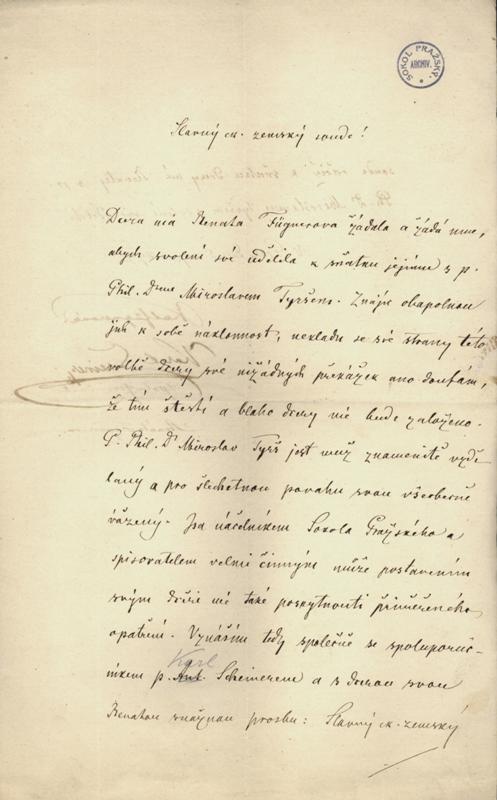 SOKOL PRAŽSKÝ.
ARCHIV.
Slavný ck. zemský soude!
Dcera má Renata Fügnerova žádala a žádá mne,
abych svolení své udělila k sňatku jejímu s p.
Phil. Drem Miroslavem Tyršem. Znajíc obapolnou
jich k sobě náklonnost, nekladu se své strany této
volbě dcery své nižádných překážek ano doufám,
že tím štěstí a blaho dcery mé bude založeno.
P. Phil. Dr Miroslav Tyrš jest muž znamenitě vzdě-
laný a pro šlechetnou povahu svou všeobecně
vážený. Jsa náčelníkem Sokola Pražského a
spisovatelem velmi činným může postavením
svým dceři mé také poskytnouti přiměřeného
opatření. Vznáším tedy společně se spoluporuč-
Karl
níkem p. Ant. Scheinerem a s dcerou svou
Renatou snažnou prosbu: Slavný ck. zemský